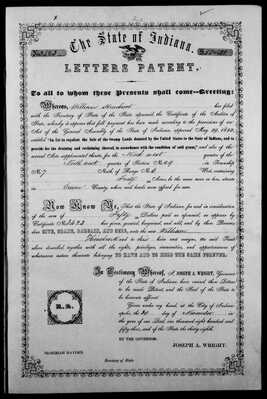 The State of Indiana.
LETTERS PATENT.
To all to whom these Presents shall come—Greeting:
Whereas, William has filed
with the Secretary of State of the State aforesaid the Certificate of the Auditor of
State, whereby it appears that full payment has been made according to the provisions of an
Act of the General Assembly of the State of Indiana, approved May 29, 1852,
entitled "An Act to regulate the Sale of the Swamp Lands donated by the United States to the State of Indiana, and to
provide for the draining and reclaiming thereof, in accordance with the condition of said grant," and also of the
several Acts supplemental thereto, for the North west quarter of the
South west quarter of Section No Township
No 7 North of Range No West, containing
Forty Acres, be the same more or less, situate
in County, where said lands were offered for sale.
Now Know Ye, That the State of Indiana, for and in consideration
of the sum of Fifty Dollars paid as aforesaid, as appears by
Certificate No has given, granted, bargained, and sold, and by these Presents
does GIVE, GRANT, BARGAIN, AND SELL, unto the said William
to and to their heirs and assigns, the said Tract
above described, together with all the rights, privileges, immunities, and appurtenances of
whatsoever nature thereunto belonging TO HAVE AND TO HOLD THE SAME FOREVER.
In Testimony Whereof, I, JOSEPH A. WRIGHT, Governor
of the State of Indiana, have caused these Letters
to be made Patent, and the Seal of the State to
be hereunto affixed.
Given under my hand, at the City of Indian-
apolis, the day of November in
the year of our Lord, one thousand eight hundred and
fifty-three, and of the State the thirty-eighth.
BY THE GOVERNOR.
JOSEPH A. WRIGHT.
Secretary of State